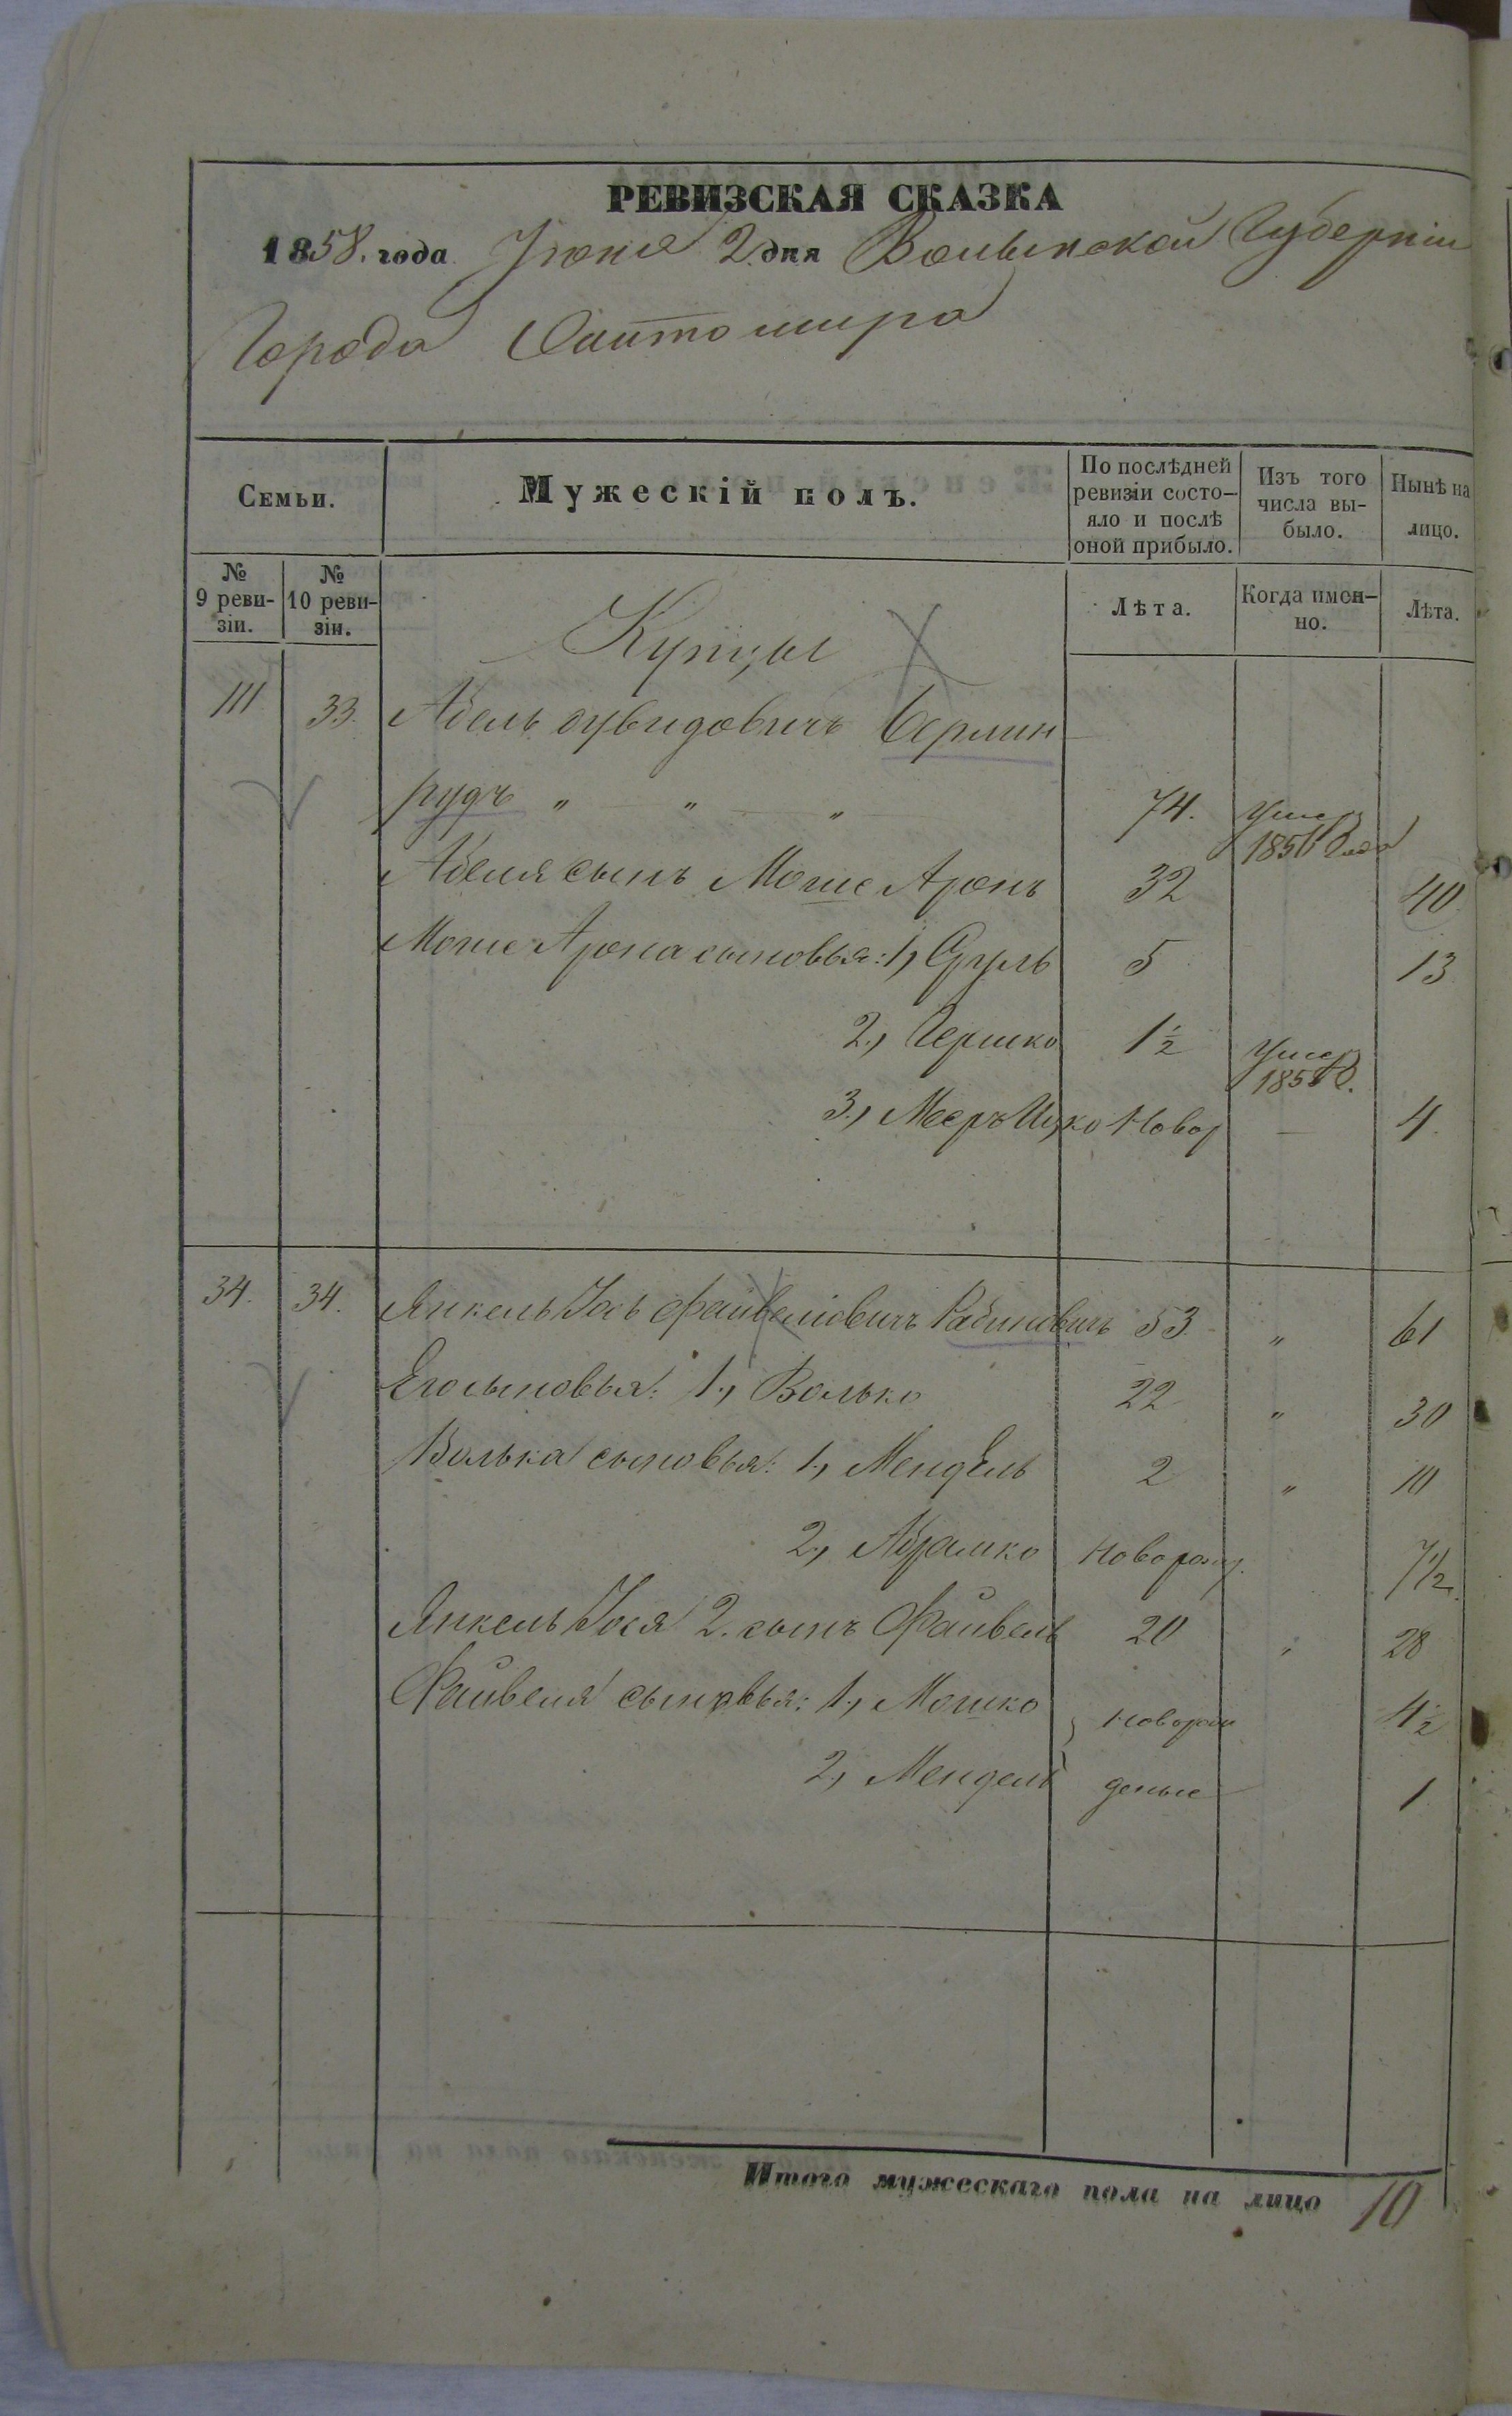 РЕВИЗСКАЯ СКАЗКА
1858. года Июня 2 дня Волынской Губерніи
Города Житомира
Семьи.
Мужескій полъ.
По послѣдней ревизіи состояло и послѣ оной прибыло.
Изъ того числа выбыло.
Нынѣ на лицо.
№ 9 ревизіи.
№ 10 ревизіи.
Лѣта.
Когда именно.
Лѣта.
Купцы
111 33. Абель Дувидовичъ Берлин
рудъ " " " 74. Умеръ 185 года
Абеля сынъ Моше Аронъ 32 40
Моше Арона сыновья: 1, Сруль 5 13
2, Гершко 1½ Умеръ 185 г.
3, Мееръ Ицко Новор 4.
34. 34. Янкель Іось Файвелювичъ Рабиновичъ 53 " 61
Его сыновья: 1, Волько 22 " 30
Волька сыновья: 1, Мендель 2 " 10
2, Абрамко новорожд. 7½.
Янкель Іося 2. сынъ Файвель 20 " 28
Файвеля сыновья: 1, Мошко новорож 4½
2, Мендель деные 1
Итого мужескаго пола на лицо 10